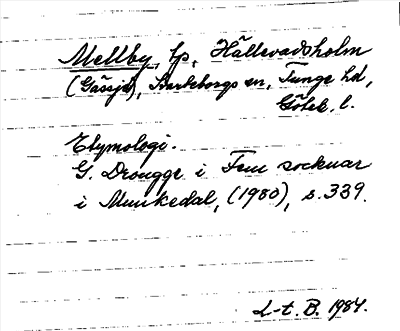 Mellby, tp, Hällevadsholm
(Gässjö), Bärfendals sn, Tunge hd,
Göteb. l.
Etymologi.
G. Drougge i Fem socknar
i Munkedal, (1980), s. 339.
L-t. B. 1984.